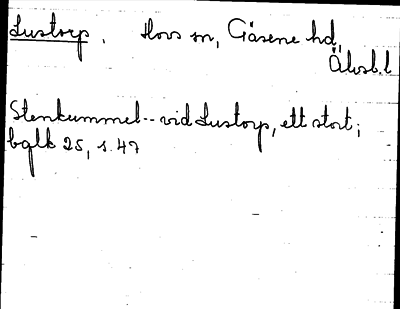 Lustorp. Hovs sn, Gäsene hd,
Älvsb.l
Stenkummel -- vid Lustorp, ett stort;
bglk 25, s. 47